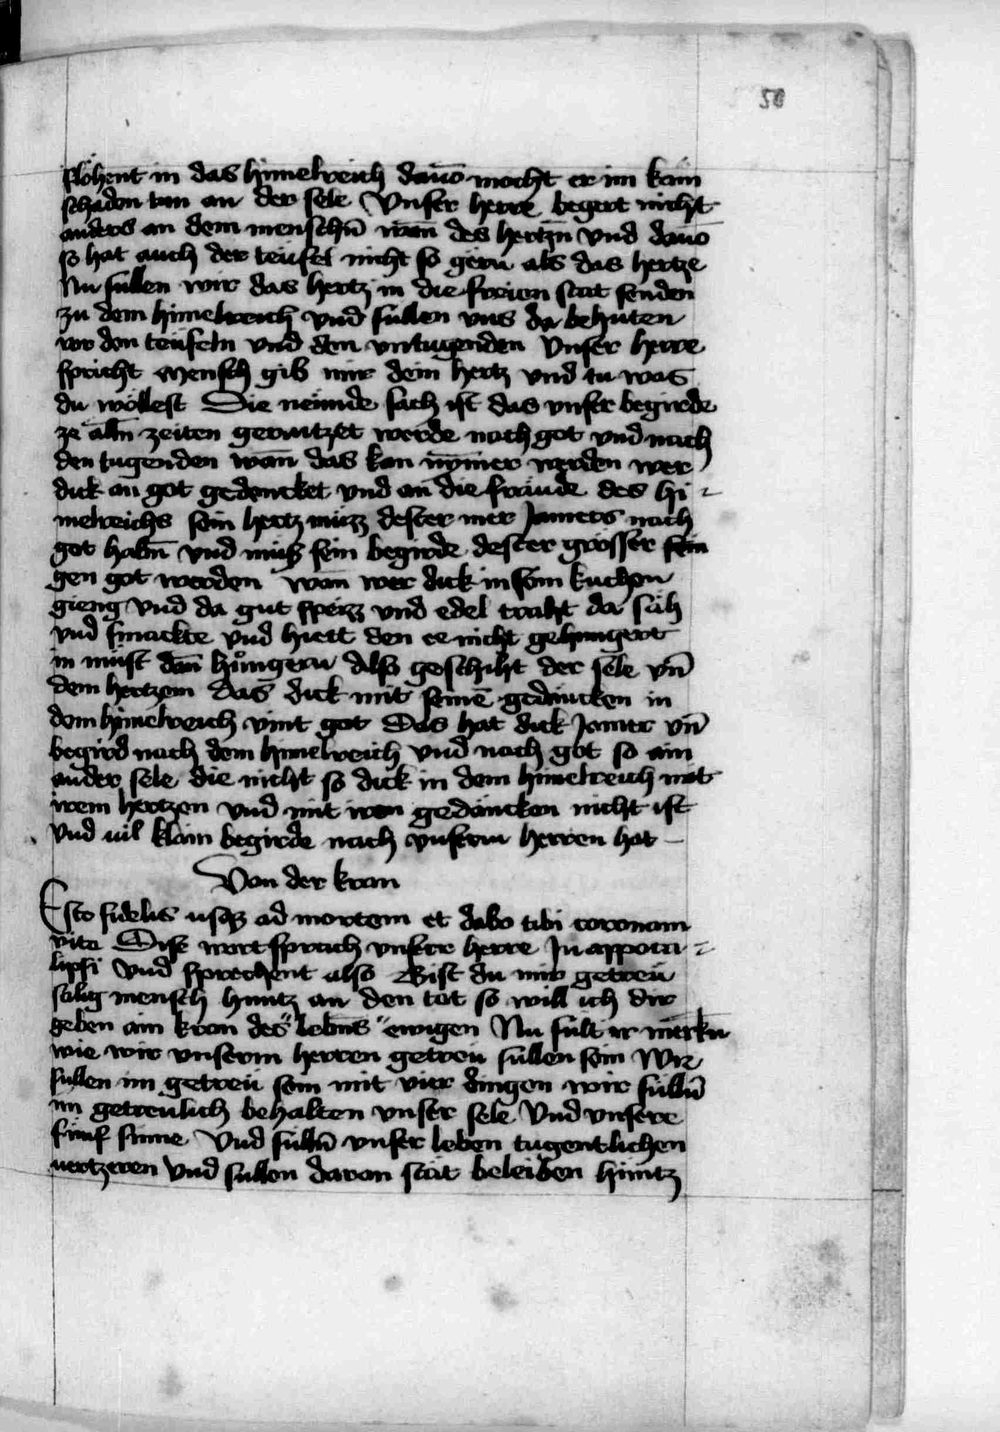 50
flöhent in das himelreich dauō mocht er im kain
schaden tun an der sele Vnser herre begert nicht
anders an dem menschn̄ wan̄ des hertzn̄ vnd dauō
so hat auch der teüfel nicht so gern als das hertze
Nu süllen wir das hertz in die freien stat senden
zu dem himelreich vnd süllen vns da behüten
vor den teüfeln vnd den vntugenden Vnser herre
spricht mensch gib mir dein hertz vnd tu was
du wöllest Die neünde sach ist das vnser begirde
ze alln̄ zeiten geraitzet werde nach got vnd nach
den tugenden wan̄ das kan nȳmer werden wer
dick an got gedencket vnd an die fräude des hi-
melreichs sein hertz müzz dester mer Jamers nach
got habn̄ vnd müß sein begirde dester grösser
gen got werden wan̄ wer dick in sein kuchen
gieng vnd da gut speizz vnd edel traht da säh
vnd smackte vnd hiett den ee nicht gehungert
in müst dan̄ hůngern Also geschiht der sele vn̄
dem hertzen das dick mit seinē gedäncken in
dem himelreich vint got Das hat dick Jamer vn̄
begird nach dem himelreich vnd nach got so ain
ander sele die nicht so dick in dem himelreich mit
irem hertzen vnd mit iren gedäncken nicht ist
vnd uil klain begirde nach vnserm herren hat
Von der kron
Esto fidelis usqz ad mortem et dabo tibi coronam
vite Dise wort sprach vnser herre In appoca-
lipsi vnd sprechent also Bist du mir getreü
sälig mensch huntz an den tot so will ich dir
geben ain kron des" lebn̄s "ewigen Nu sült ir merkn̄
wie wir vnserm herren getreü süllen sein Wir
süllen im getreü sein mit vier dingen wir sülln̄
im getreulich behalten vnser sele Vnd vnsere
fünf sinne Vnd sülln̄ vnser leben tugentlichen
uertzeren Vnd süllen daran stät beleiben hüntz